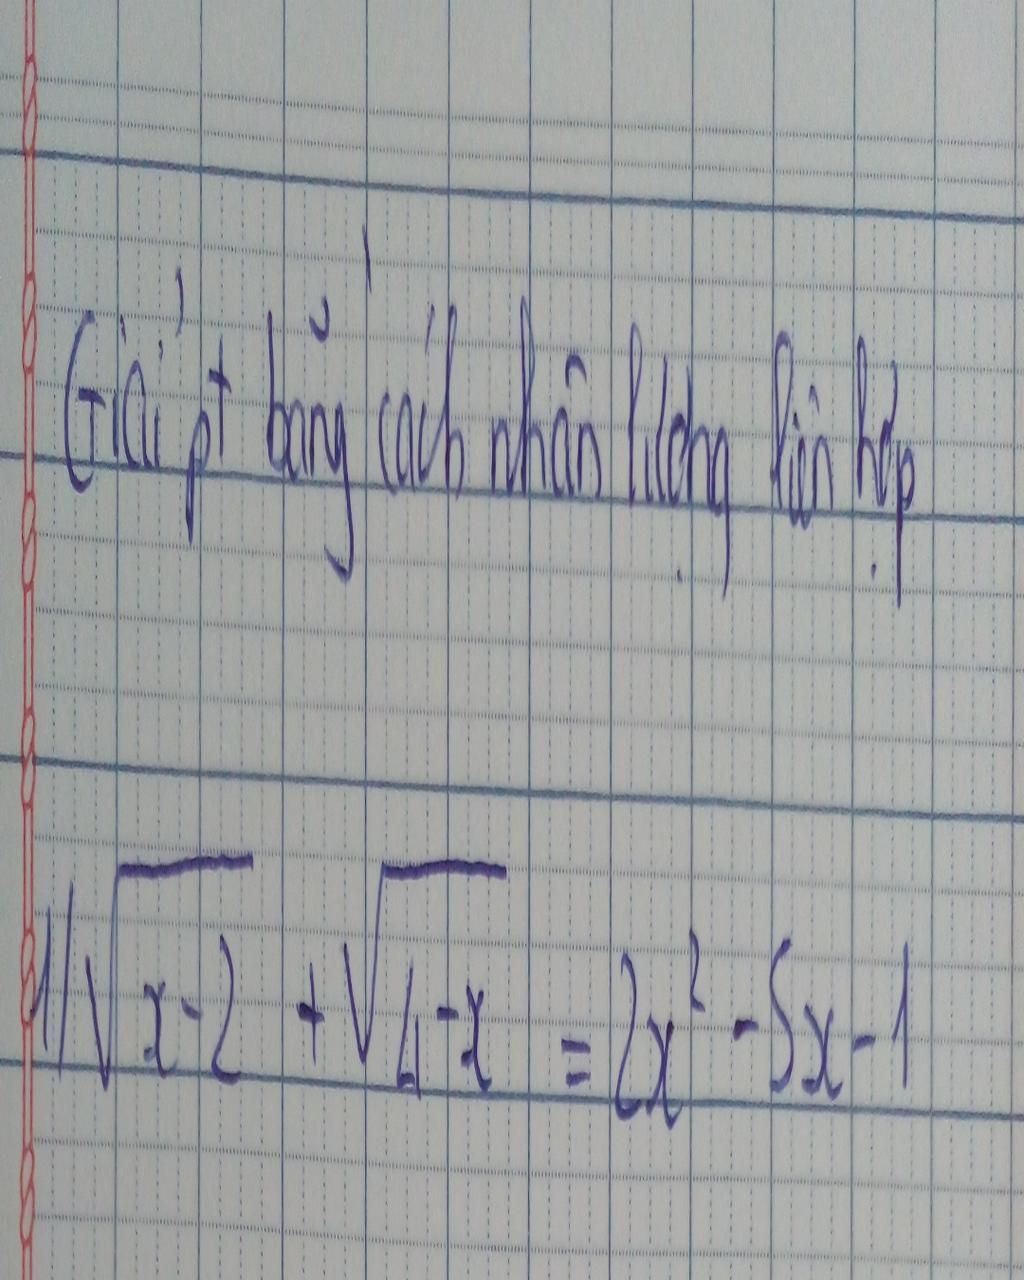 Giải pt bằng cách nhân lượng liên hợp
1/ √(x-2) + √(4-x) = 2x² - 5x - 1